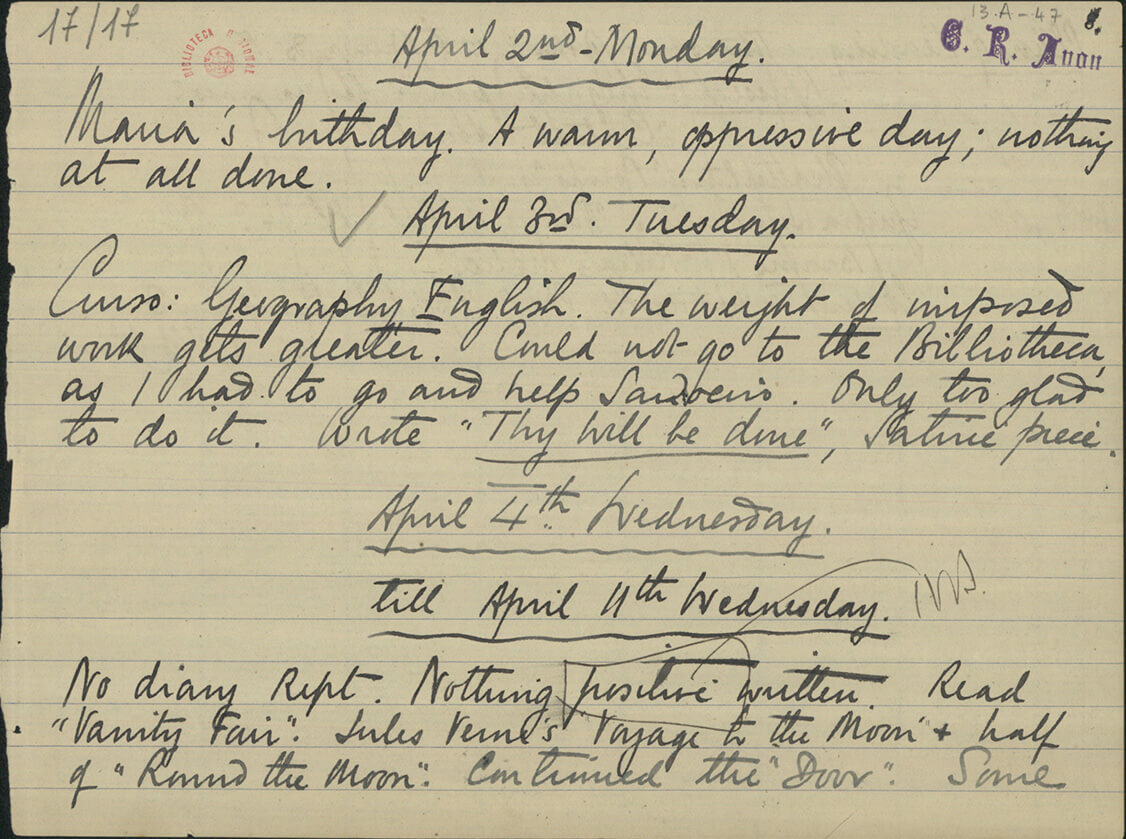 17/17
13.A-47
8.
BIBLIOTECA NACIONAL
C. R. Anon
April 2nd - Monday.
Maria's birthday. A warm, oppressive day; nothing
at all done.
April 3rd. Tuesday.
Curso: Geography English. The weight of imposed
work gets greater. Could not go to the Bibliotheca,
as I had to go and help Sandoeiro. Only too glad
to do it. Wrote "Thy Will be done", Satiric piece.
April 4th Wednesday.
till April 11th Wednesday.
No diary kept. Nothing positive written. Read
"Vanity Fair". Jules Verne's "Voyage to the Moon" + half
of "Round the Moon". Continued the "Door". Some